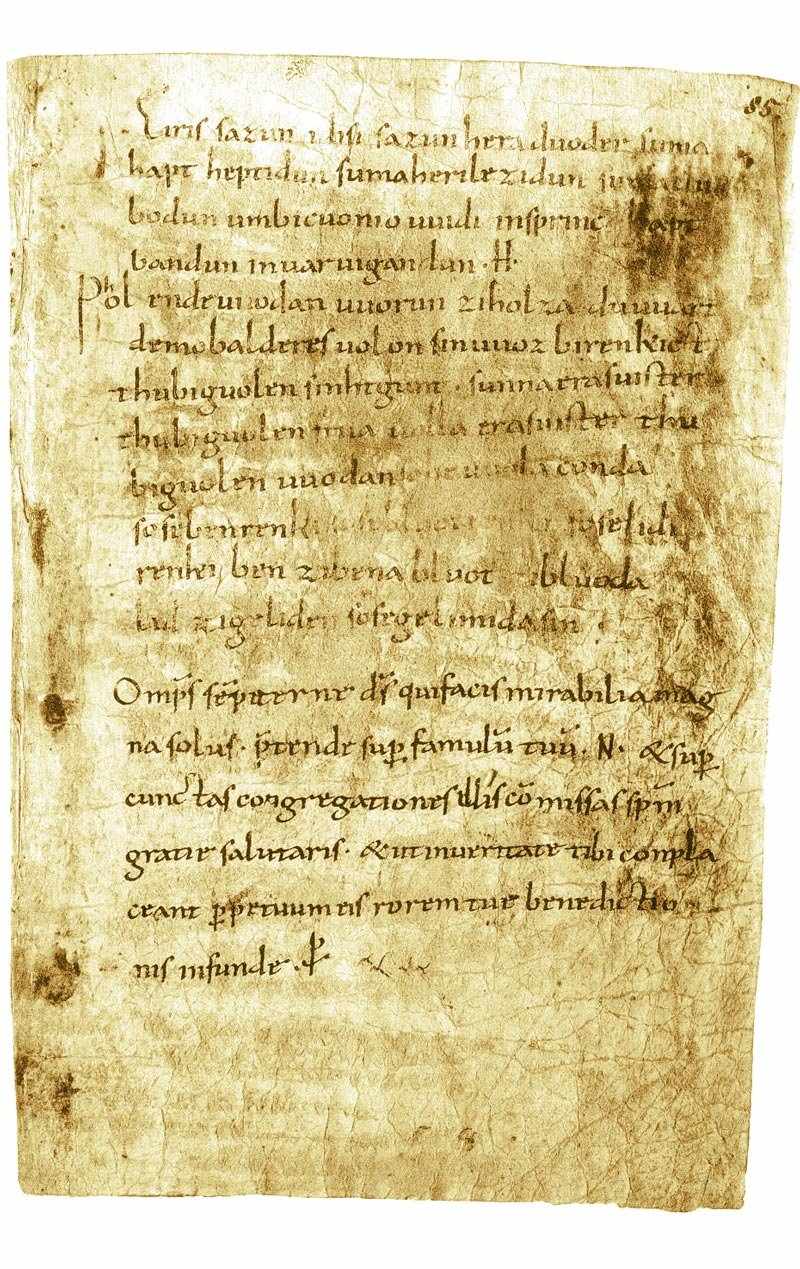 Eiris sazun idisi sazun hera duoder suma
hapt heptidun sumaherilezidun sumaclu
bodun umbicuonio uuidi insprinc hapt
bandun inuaruigandun · H ·
Phol endeuuodan uuorun ziholza du uuart
demobalderes uolon sinuuoz birenkict
thubiguolen sinhtgunt · sunnaerasuister
thubiguolen friia uolla erasuister thu
biguolen uuodan sohe uuolaconda
sosebenrenki sosebluotrenki soselidi
renki ben zibena bluot zibluoda
lid zigeliden sosegelimidasin
Omp̄s semp̄iterne ds̄ quifacis mirabilia mag
na solus · p̄tende sup̱ famulū tuū · N · &sup̱
cunctas congregationes illis cō missas sp̄m
gratie salutaris · &utinueritate tibi conpla
ceant p̱petuum eis rorem tue benedictio
nis infunde · ꝑ
85